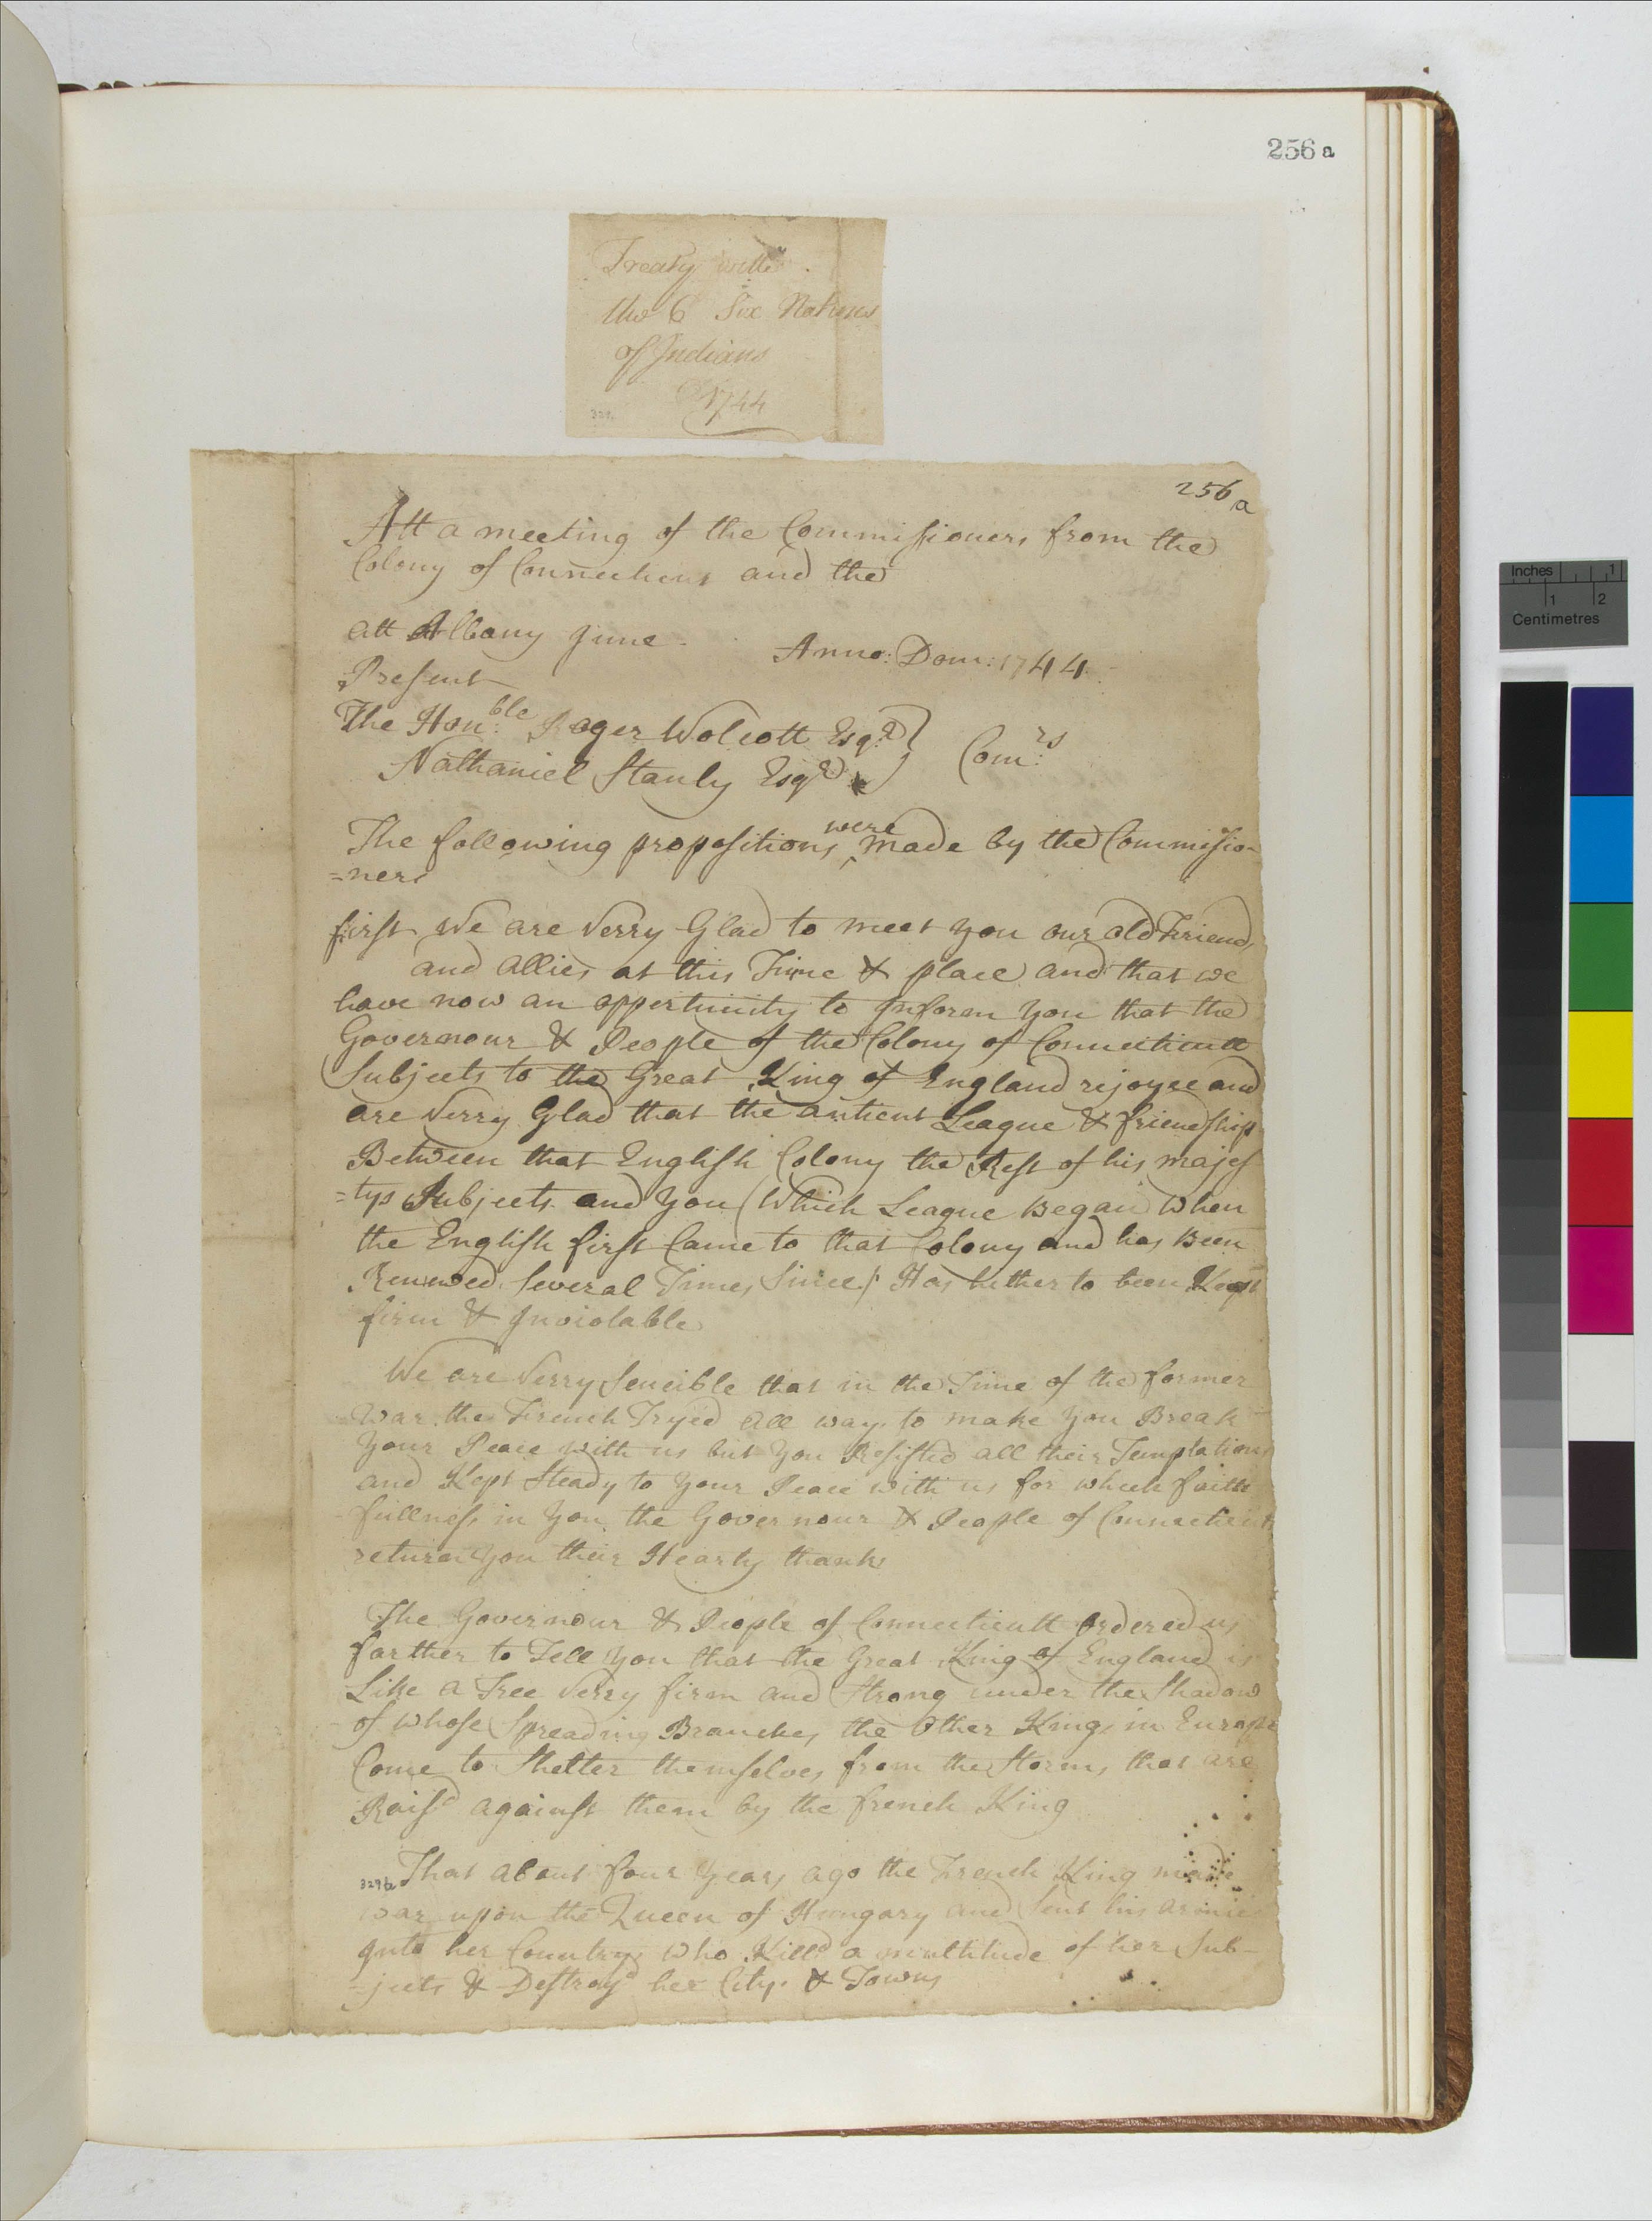 256 a
Treaty with
the 6 Six Nations
of Indians
1744
329.
256 a
Att a meeting of the Commissioners from the
Colony of Connecticut and the
att Albany June Anno: Dom: 1744
Present
The Hon:ble Roger Wolcott Esqr
Nathaniel Stanly Esqr } Com:rs
The following propositions were made by the Commissio-
=ners
first We are Verry Glad to meet you our old Friends
and allies at this Time & place and that we
have now an oppertunity to Inform you that the
Governour & People of the Colony of Connecticutt
Subjects to the Great King of England rejoyce and
are Verry Glad that the antient League & friendship
Between that English Colony the Rest of his majes
=tys Subjects and you (Which League Began When
the English first Came to that Colony and has Been
Renewed Several Times Since) Has hitherto been Kept
firm & Inviolable
We are Verry Sencible that in the Time of the former
War the French Tryed all ways to make you Break
your Peace with us but you Resisted all their Temptations
and Kept Steady to your Peace with us for which faith
fullness in you the Governour & People of Connecticut
return you their Hearty thanks
The Governour & People of Connecticutt ordered us
farther to Tell you that the Great King of England is
Like a Tree Verry firm and Strong under the Shadow
of whose Spreading Branches the Other Kings in Europe
Come to Shelter themselves from the Storms that are
Raisd against them by the french King
329b That about four years ago the French King made
war upon the Queen of Hungary and Sent his armies
Into her Country who Killd a multitude of her Sub-
=jects & Destroyd her Citys & Towns
Inches 1
1 2
Centimetres